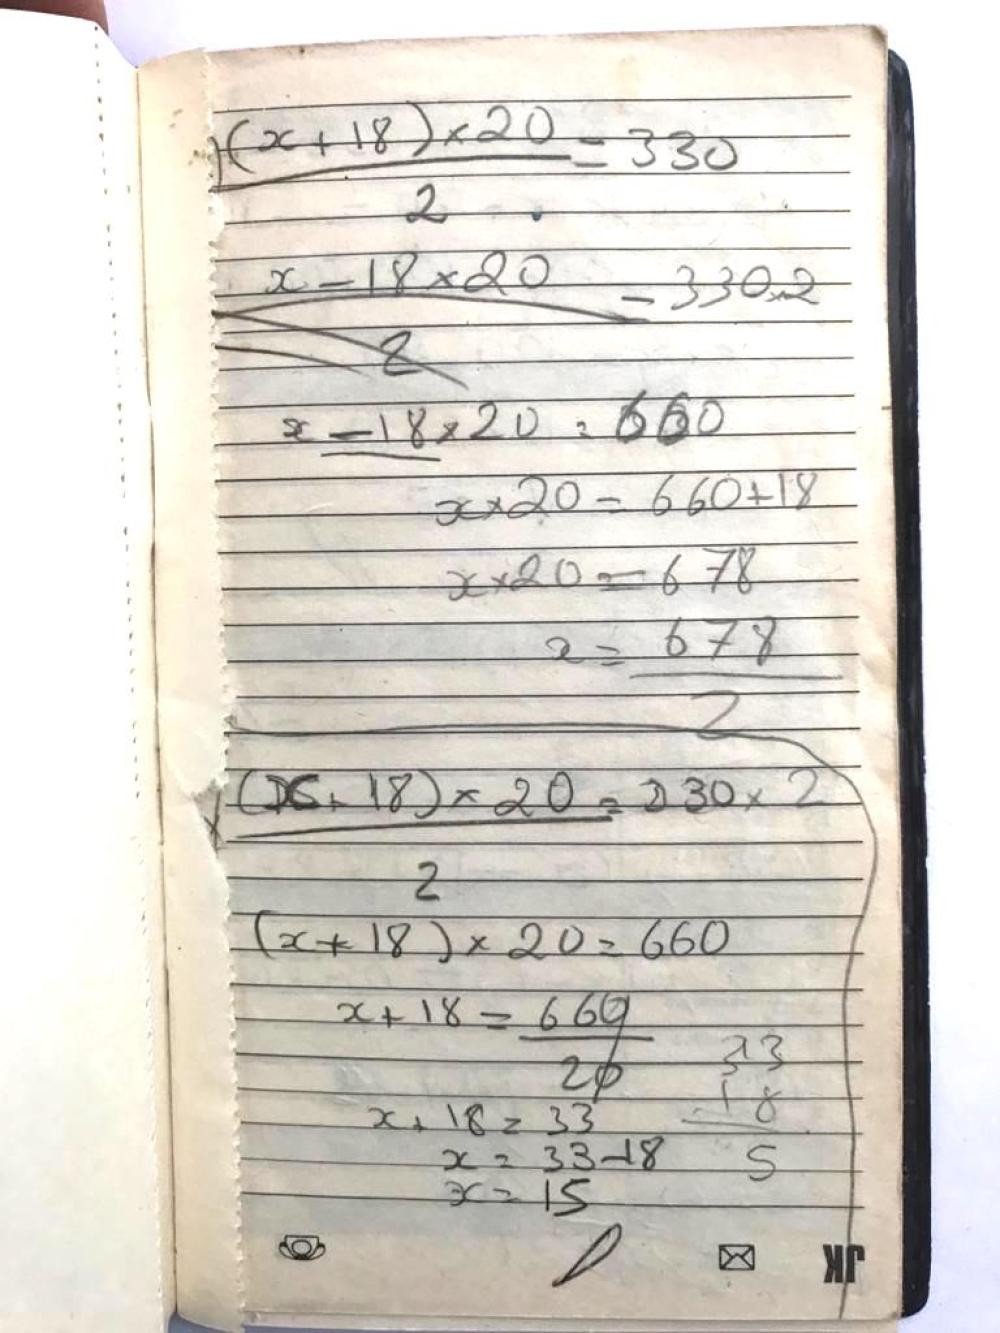 (x + 18) × 20 = 330
2
x - 18 × 20 - 330×2
2
x - 18 × 20 = 660
x×20 = 660+18
x×20 = 678
x = 678
2
(x + 18) × 20 = 330 × 2
2
(x + 18) × 20 = 660
x + 18 = 660
20
x + 18 = 33
x = 33-18
x = 15
33
-18
5
JK